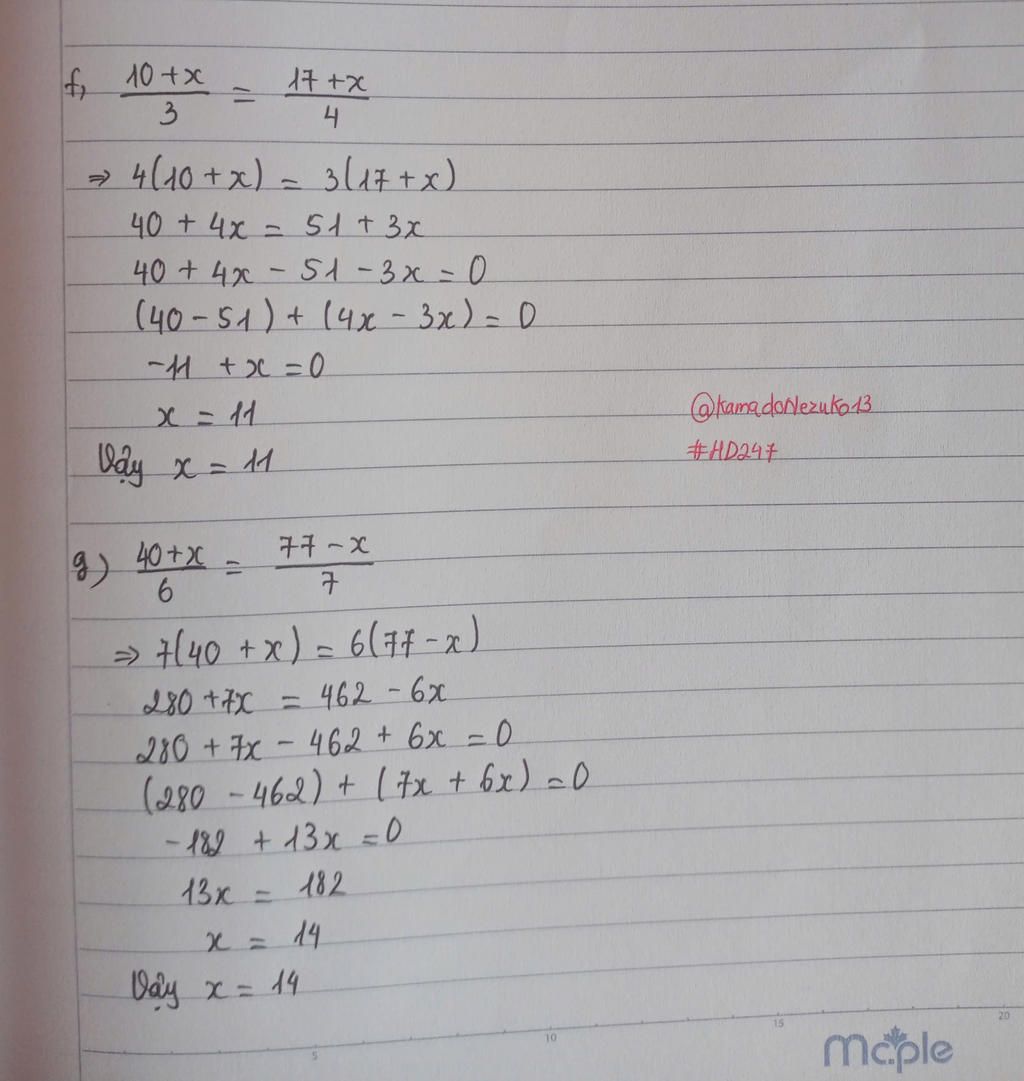 f, 10 + x / 3 = 17 + x / 4
⇒ 4(10 + x) = 3(17 + x)
40 + 4x = 51 + 3x
40 + 4x - 51 - 3x = 0
(40 - 51) + (4x - 3x) = 0
-11 + x = 0
x = 11
@kamadoNezuko13
Vậy x = 11
#HD247
g) 40 + x / 6 = 77 - x / 7
⇒ 7(40 + x) = 6(77 - x)
280 + 7x = 462 - 6x
280 + 7x - 462 + 6x = 0
(280 - 462) + (7x + 6x) = 0
-182 + 13x = 0
13x = 182
x = 14
Vậy x = 14
5 10 15 20
Maple